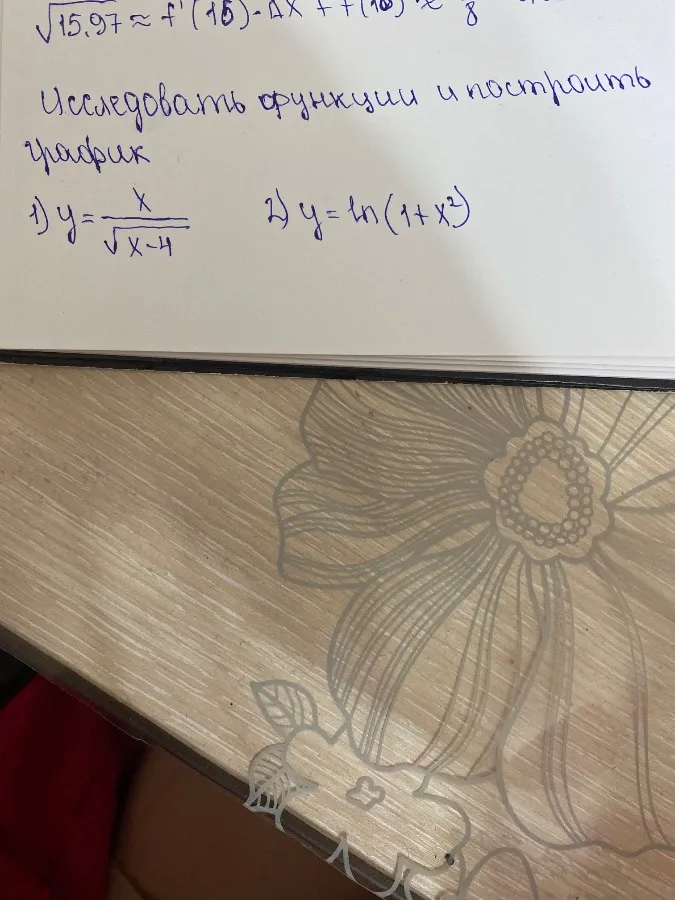 √15,97 ≈ f'(16)·Δx + f(16)
Исследовать функции и построить
график
1) y = x/√(x-4) 2) y = ln(1+x²)